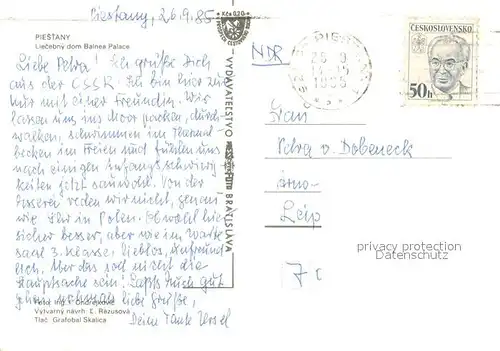 Piešťany, 26.9.85
PIEŠŤANY
Liečebný dom Balnea Palace
Liebe Petra! Ich grüße Dich
aus der ČSSR. Ich bin hier zur
Kur mit einer Freundin. Wir
lassen uns ins Moor packen, durch-
walken, schwimmen im Thermal-
becken im Freien und fühlen uns
nach einigen Anfangsschwierig-
keiten jetzt sauwohl. Von der
Misere reden wir nicht, genau
wie Ihr in Polen. Obwohl hier
sicher besser, aber wie im Warte-
saal 3. Klasse, lieblos, unfreund-
lich. Aber das soll nicht die
Hauptsache sein! Laßt's Euch gut
gehen, nochmals liebe Grüße,
Deine Tante Ursel
Výtvarný návrh: E. Rezusová
Tlač: Grafobal Skalica
Kčs 0,20
VYDAVATEĽSTVO
BRATISLAVA
NDR
26. 9.
ČESKOSLOVENSKO
50h
Frau
Petra v. Dobeneck
Leip
7c
privacy protection
Datenschutz